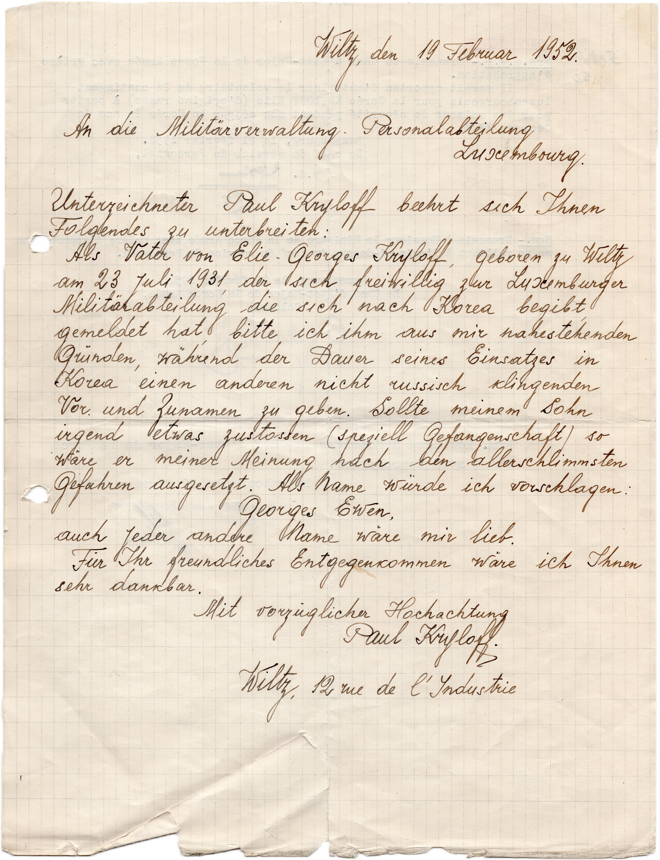 Wiltz, den 19 Februar 1952.
An die Militärverwaltung. Personalabteilung
Luxembourg.
Unterzeichneter Paul Kryloff beehrt sich Ihnen
Folgendes zu unterbreiten:
Als Vater von Elie-Georges Kryloff, geboren zu Wiltz
am 23 Juli 1931, der sich freiwillig zur Luxemburger
Militärabteilung, die sich nach Korea begibt
gemeldet hat, bitte ich ihm aus mir nahestehenden
Gründen, während der Dauer seines Einsatzes in
Korea einen anderen nicht russisch klingenden
Vor. und Zunamen zu geben. Sollte meinem Sohn
irgend etwas zustossen (speziell Gefangenschaft) so
wäre er meiner Meinung nach den allerschlimmsten
Gefahren ausgesetzt. Als Name würde ich vorschlagen:
Georges Ewen,
auch jeder andere Name wäre mir lieb.
Für Ihr freundliches Entgegenkommen wäre ich Ihnen
sehr dankbar.
Mit vorzüglicher Hochachtung
Paul Kryloff.
Wiltz, 12 rue de l'Industrie